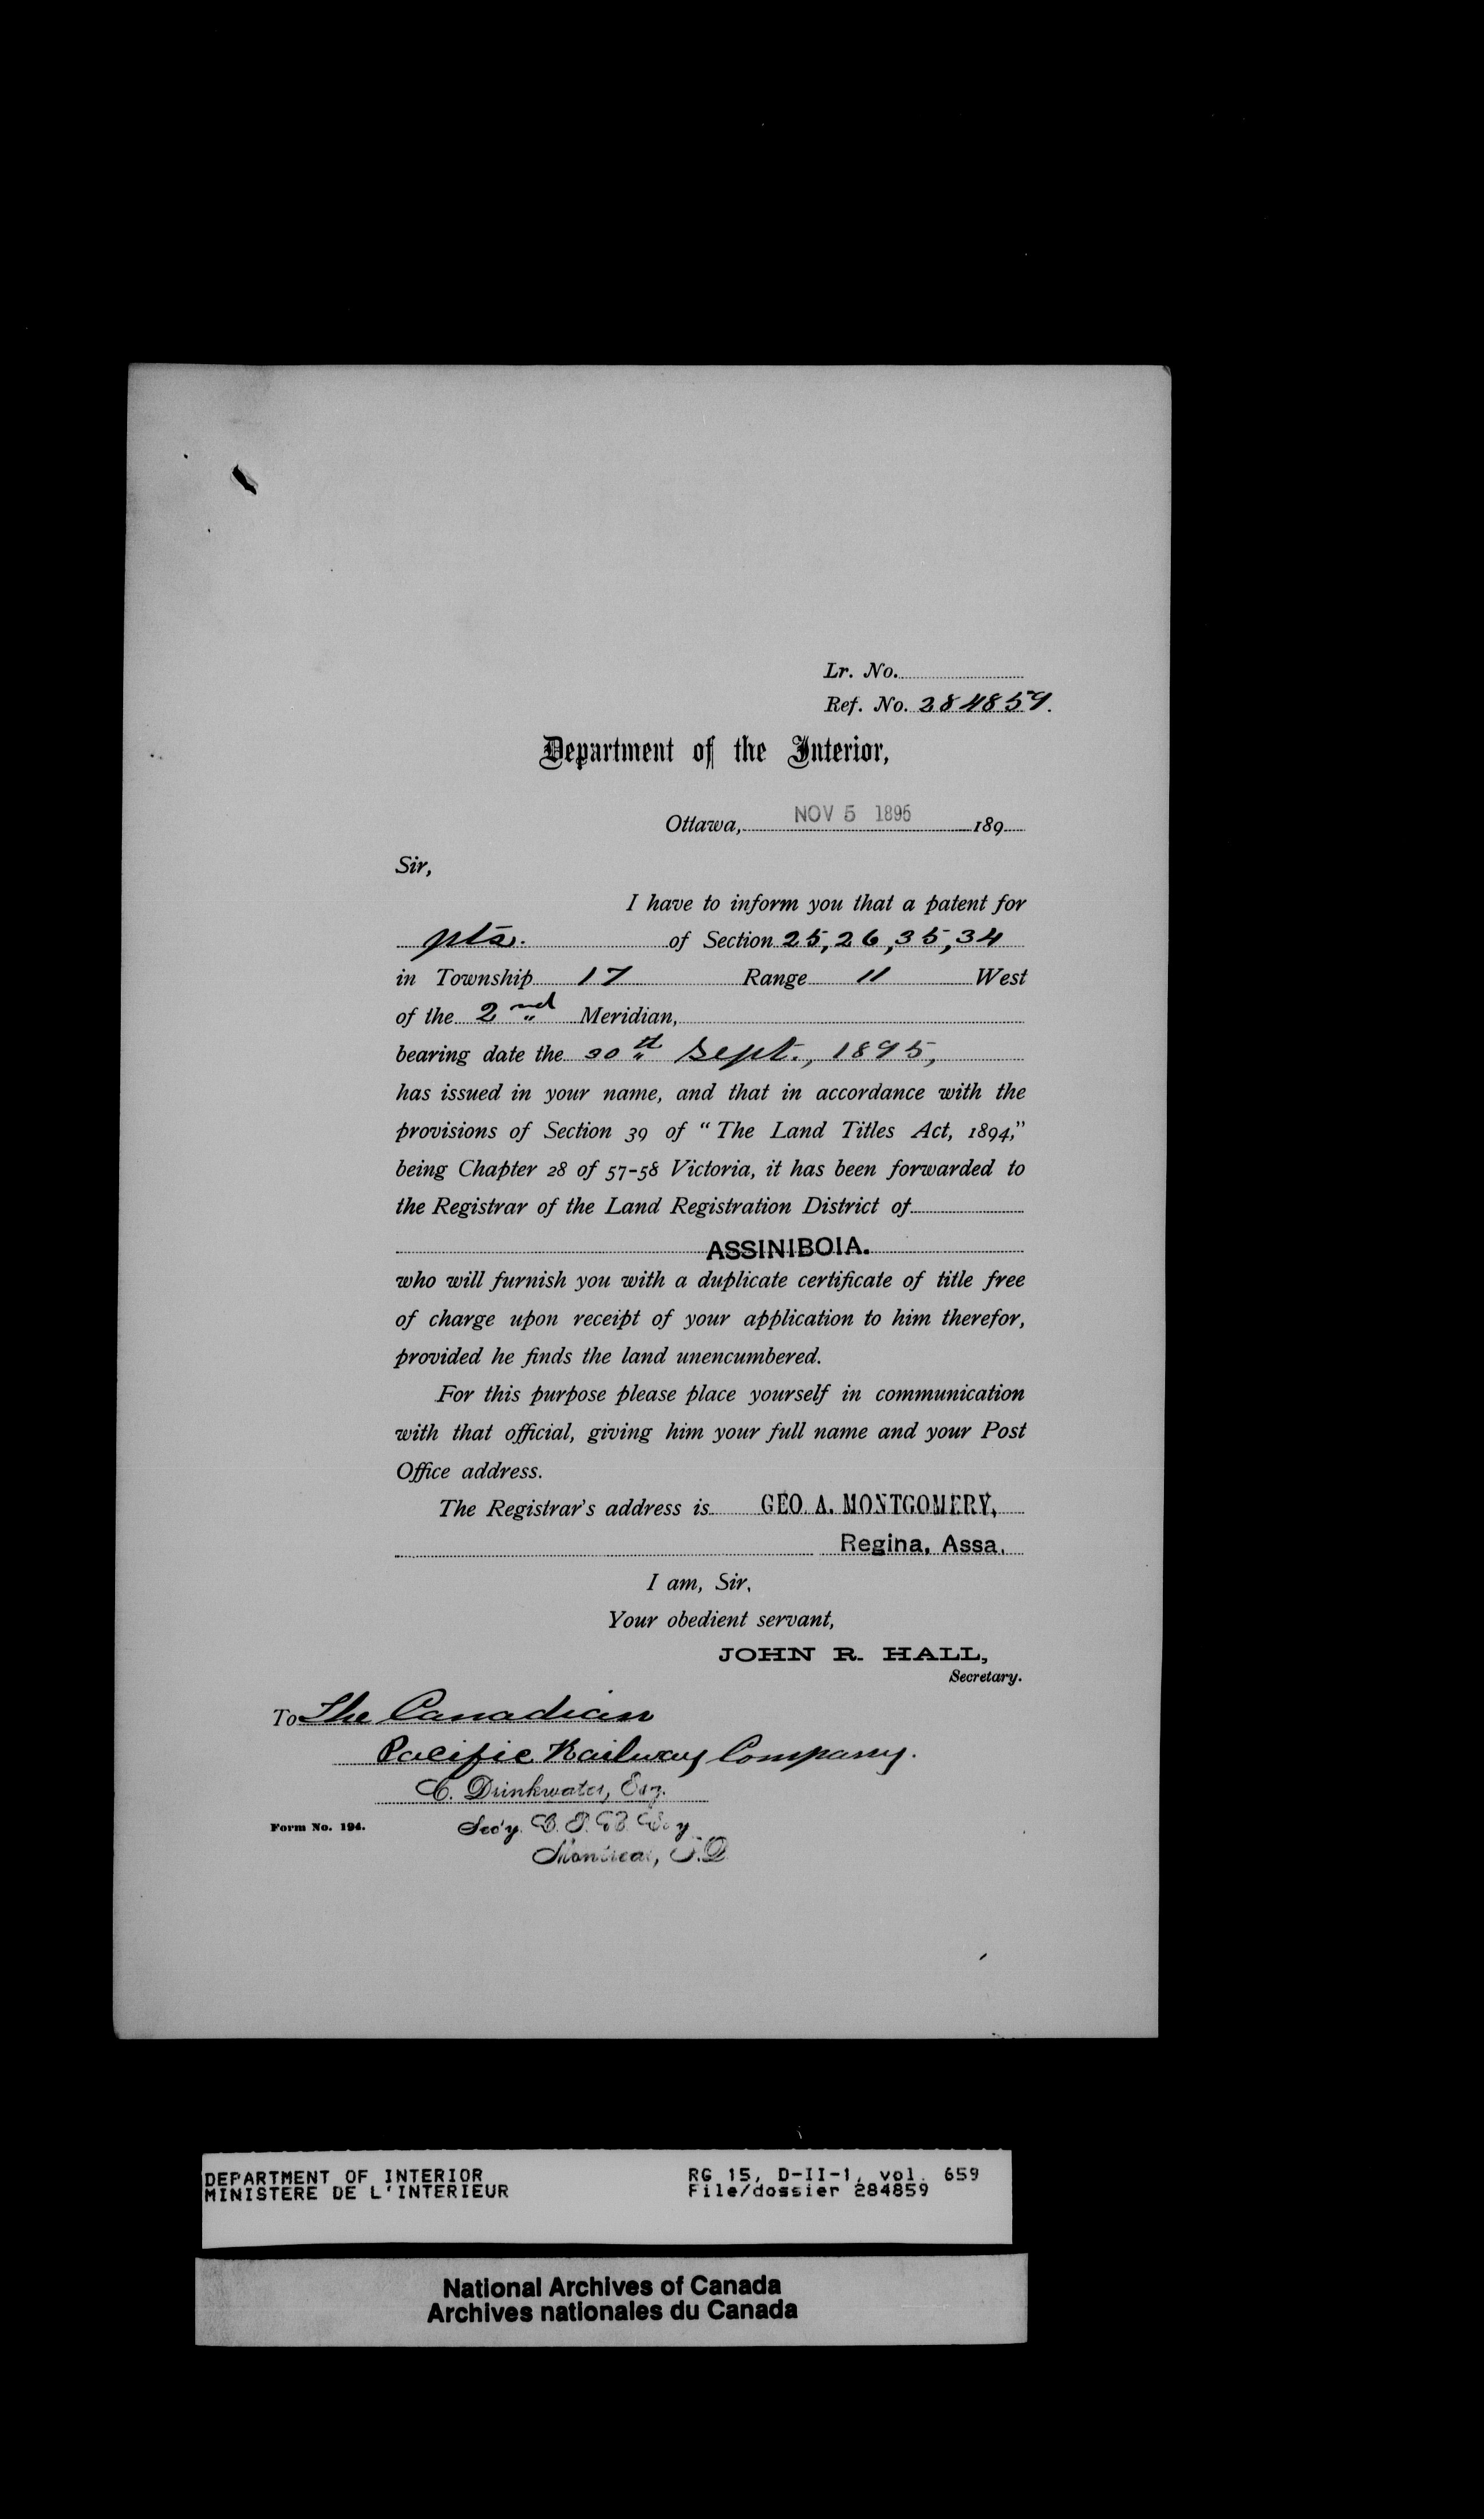 Lr. No.
Ref. No. 284859.
Department of the Interior,
Ottawa, NOV 5 1895 189
Sir,
I have to inform you that a patent for
pts. of Section 25, 26, 35, 34
in Township 17 Range 11 West
of the 2nd Meridian,
bearing date the 30th Sept., 1895,
has issued in your name, and that in accordance with the
provisions of Section 39 of "The Land Titles Act, 1894,"
being Chapter 28 of 57-58 Victoria, it has been forwarded to
the Registrar of the Land Registration District of
ASSINIBOIA.
who will furnish you with a duplicate certificate of title free
of charge upon receipt of your application to him therefor,
provided he finds the land unencumbered.
For this purpose please place yourself in communication
with that official, giving him your full name and your Post
Office address.
The Registrar's address is GEO. A. MONTGOMERY,
Regina, Assa.
I am, Sir,
Your obedient servant,
JOHN R. HALL,
Secretary.
To The Canadian
Pacific Railway Company.
C. Drinkwater, Esq.
Form No. 194. Sec'y. C. P. R. Coy
Montreal, P.Q
DEPARTMENT OF INTERIOR RG 15, D-II-1, vol. 659
MINISTERE DE L'INTERIEUR File/dossier 284859
National Archives of Canada
Archives nationales du Canada